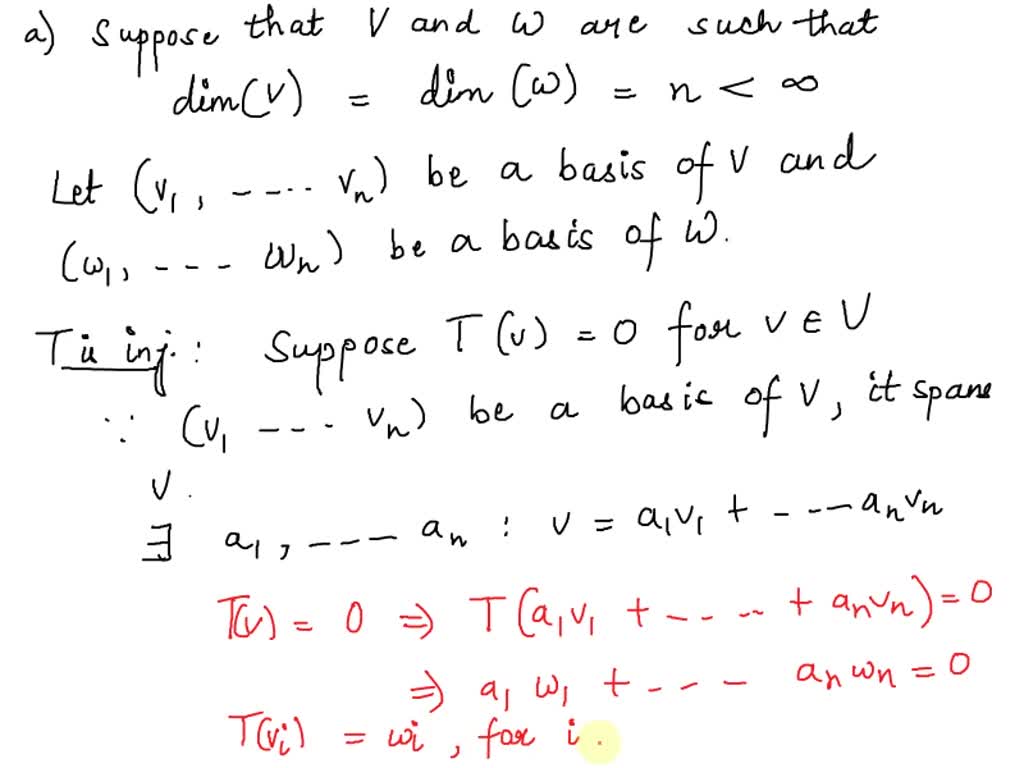 a) Suppose that V and W are such that
dim(V) = dim (W) = n < ∞
Let (v₁, ---.. vₙ) be a basis of V and
(w₁, --- wₙ) be a basis of W.
T is inj.: Suppose T(v) = 0 for v ∈ V
∵ (v₁ ---. vₙ) be a basis of V, it spans
V.
∃ a₁, ---- aₙ : v = a₁v₁ + ---- aₙvₙ
T(v) = 0 ⇒ T(a₁v₁ + ---.. + aₙvₙ) = 0
⇒ a₁ w₁ + --- aₙ wₙ = 0
T(vᵢ) = wᵢ, for i.